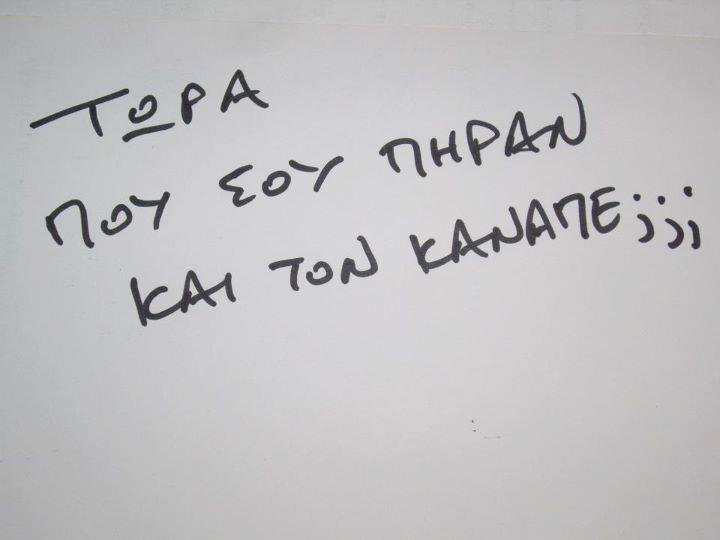 ΤΩΡΑ
ΠΟΥ ΣΟΥ ΠΗΡΑΝ
ΚΑΙ ΤΟΝ ΚΑΝΑΠΕ;;;